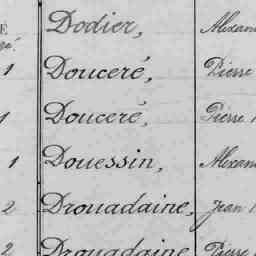 Dodier, Alexan
1 Douceré, Pierre
1 Douceré, Pierre
1 Douessin, Alexan
2 Drouadaine, Jean
2 Drouadaine Pierre